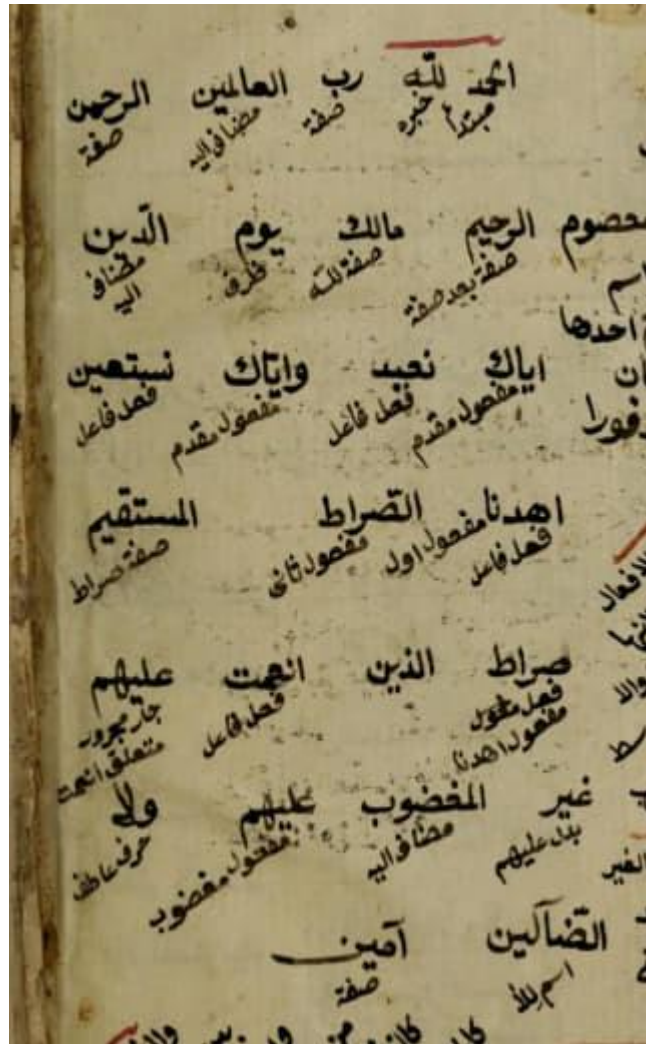 الحمد لله رب العالمين الرحمن
مبتدأ خبره صفة مضاف اليه صفة
معصوم الرحيم مالك يوم الدين
صفة بعد صفة صفة لله ظرف مضاف اليه
اسم
احدها
اياك نعبد واياك نستعين
مفعول مقدم فعل فاعل مفعول مقدم فعل فاعل
اهدنا الصراط المستقيم
فعل فاعل مفعول اول مفعول ثانى صفة صراط
صراط الذين انعمت عليهم
مفعول اهدنا فعل فاعل جار مجرور متعلق انعمت
غير المغضوب عليهم ولا
بدل عليهم مضاف اليه مفعول مغضوب حرف عاطف
الضآلين آمين
اسم للا صفة